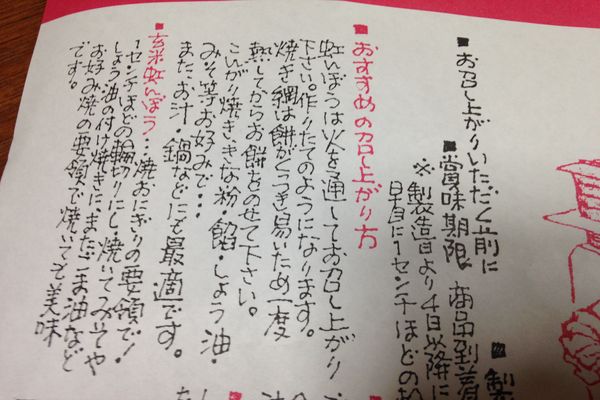 ■製
■賞味期限 商品到着
※製造日より4日以降に
■お召し上がりいただく前に
■おすすめの召し上がり方
虹んぼうは火を通してお召し上がり
下さい。作りたてのようになります。
焼き網は餅がくっつき易いため一度
熱してからお餅をのせて下さい。
こんがり焼き、きな粉・餡・しょう油・
みそ等お好みで…
またお汁・鍋などにも最適です。
■玄米虹んぼう…焼おにぎりの要領で!
1センチほどの輪切りにし、焼いてみそや
しょう油の付け焼きに、またごま油など
お好み焼の要領で焼いても美味
です。